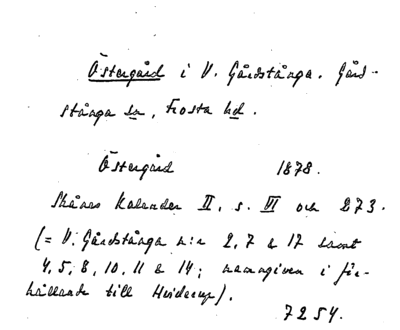 Östergård i V. Gårdstånga. Gård-
stånga sn, Frosta hd.
Östergård 1878.
Skånes Kalender II, s. VI och 273.
(= V. Gårdstånga n:r 2, 7 & 17 samt
4, 5, 8, 10, 11 & 14; namngiven i för-
hållande till Hviderup).
7254.